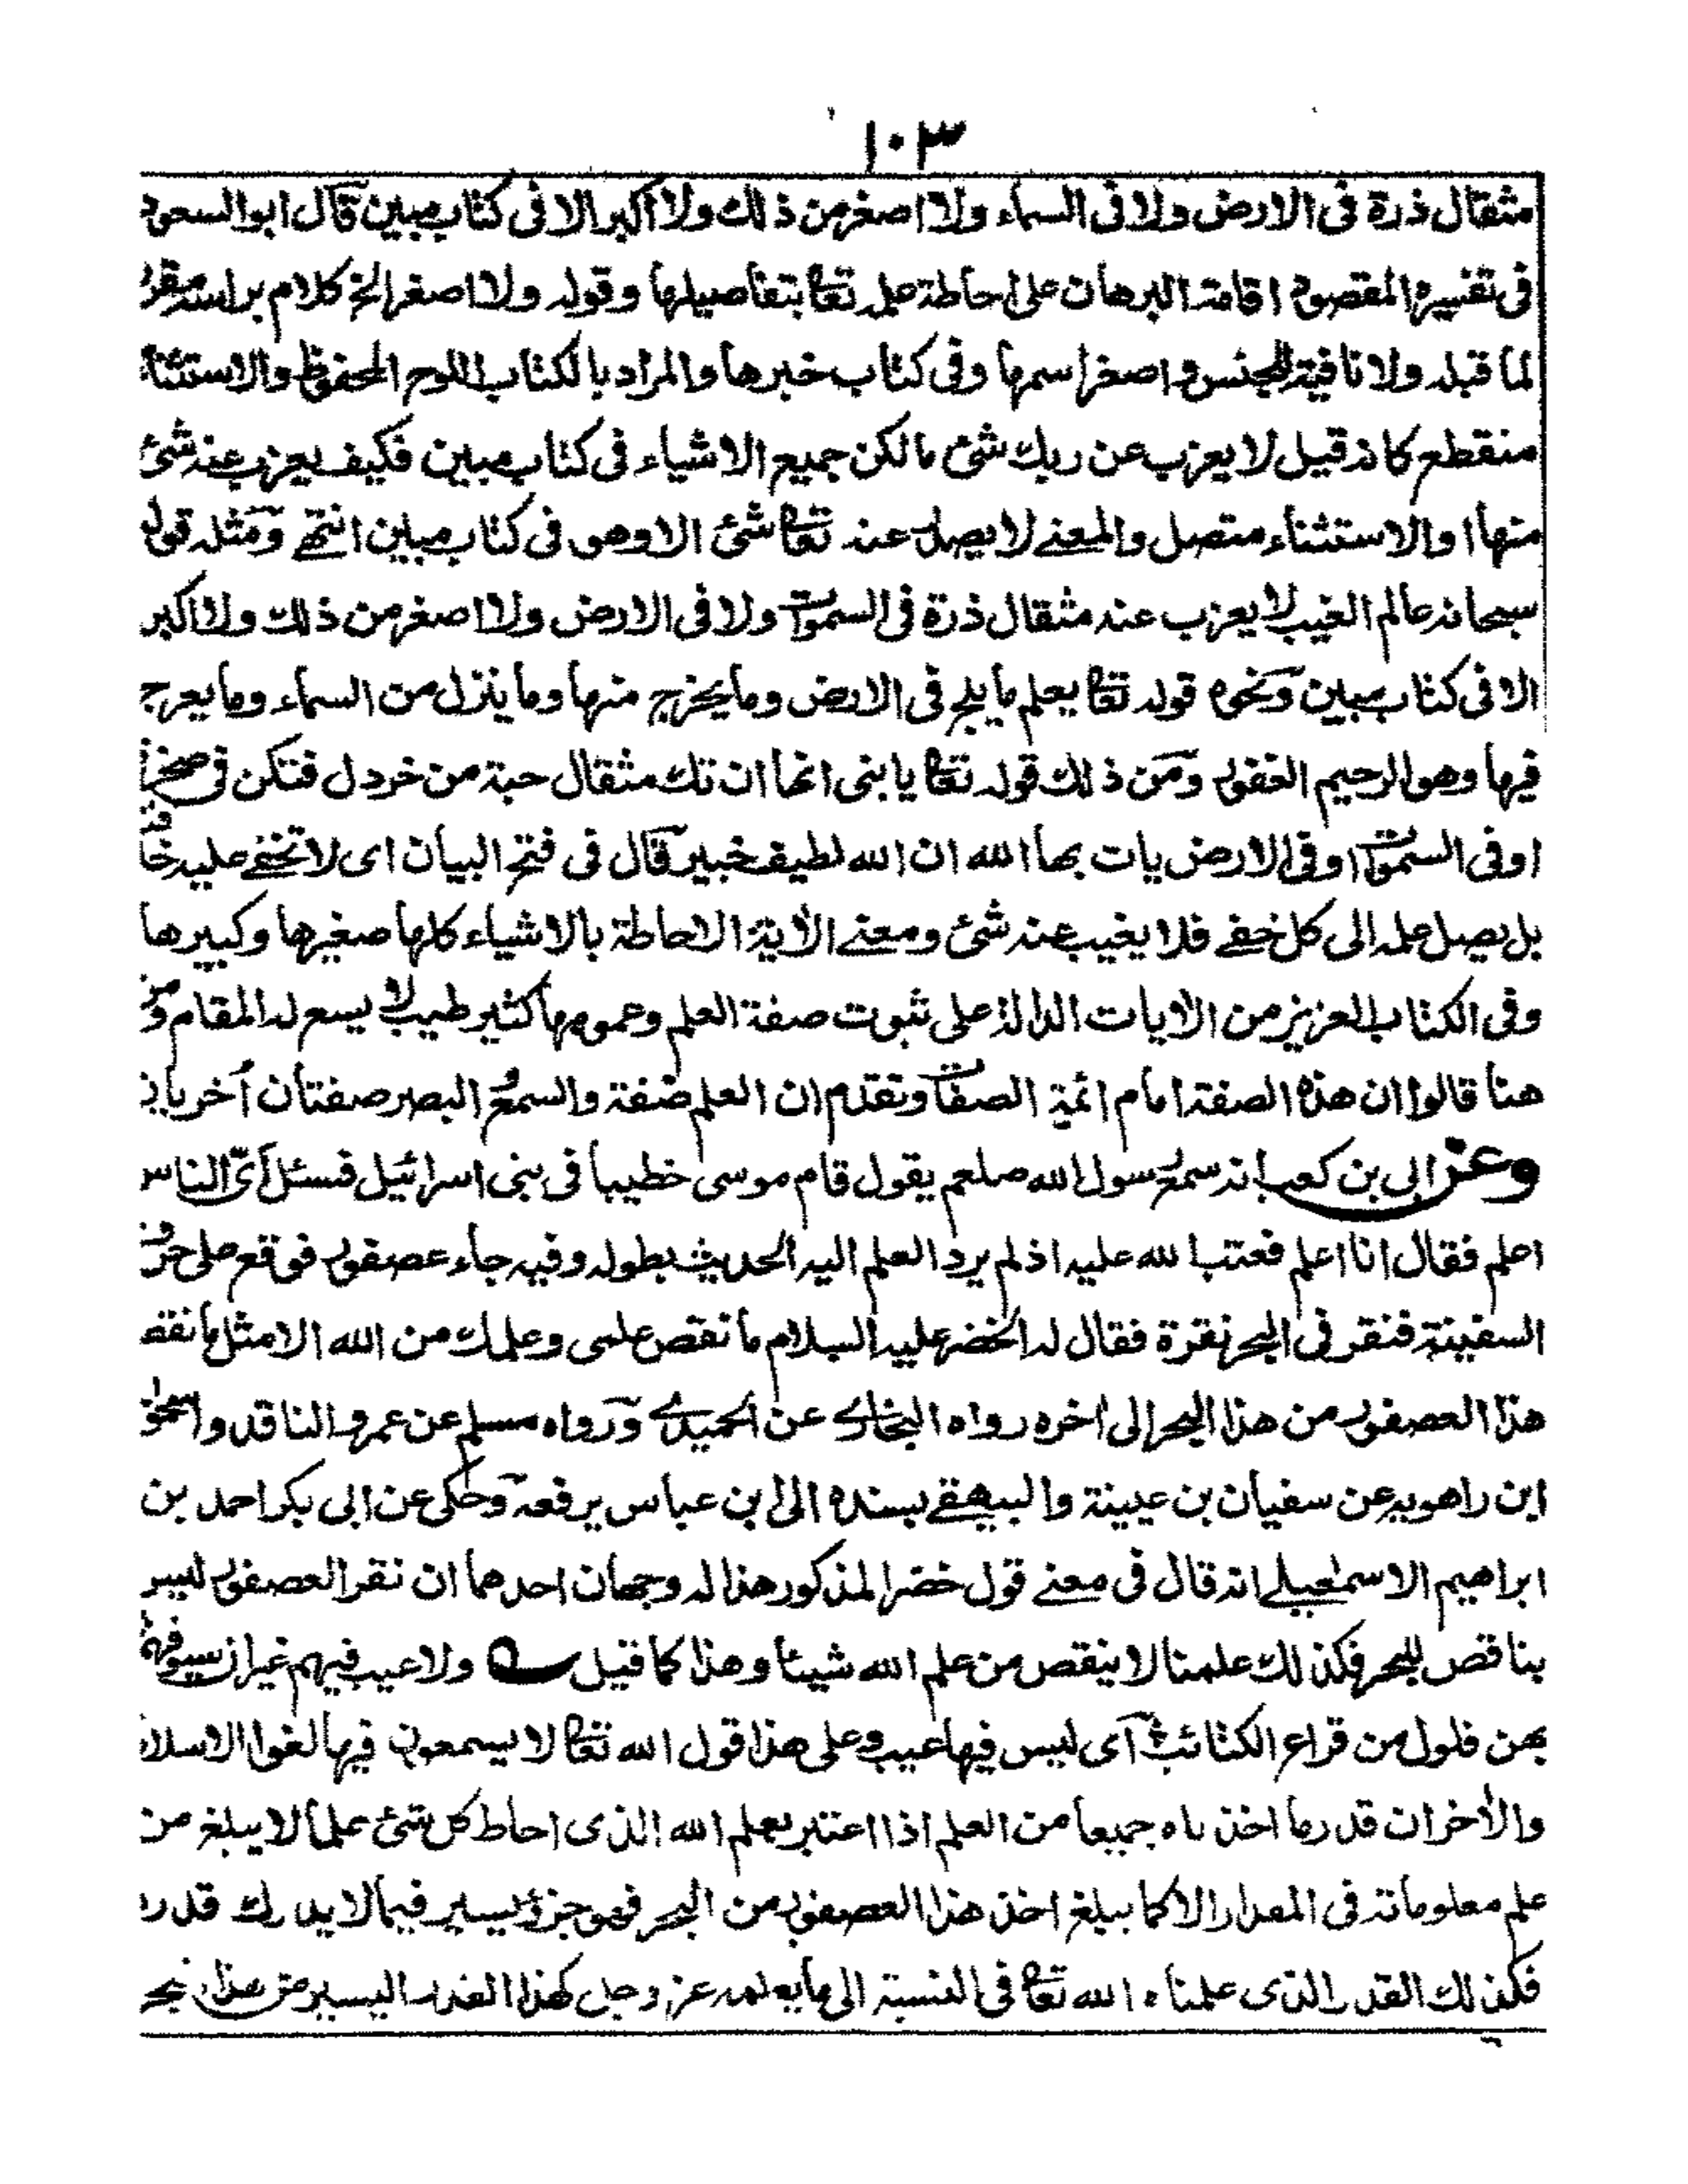 ١٠٣
مثقال ذرة فى الارض ولا فى السماء ولا اصغر من ذلك ولا اكبر الا فى كتاب مبين قال ابو السعود
فى تفسيره المقصود اقامة البرهان على احاطة علمه تعا بتفاصيلها وقوله ولا اصغر الخ كلام براسه مقرر
لما قبله ولا نافية للجنس و اصغر اسمها وفى كتاب خبرها والمراد بالكتاب اللوح المحفوظ والاستثناء
منقطع كانه قيل لا يعزب عن ربك شئ ما لكن جميع الاشياء فى كتاب مبين فكيف يعزب عنه شئ
منها او الاستثناء متصل والمعنے لا يصدر عنه تعا شئ الا وهو فى كتاب مبين انتهے ومثله قوله
سبحانه عالم الغيب لا يعزب عنه مثقال ذرة فى السموات ولا فى الارض ولا اصغر من ذلك ولا اكبر
الا فى كتاب مبين ونحوه قوله تعا يعلم ما يلج فى الارض وما يخرج منها وما ينزل من السماء وما يعرج
فيها وهو الرحيم الغفور ومن ذلك قوله تعا يا بنى انها ان تك مثقال حبة من خردل فتكن فى صخرة
او فى السموات او فى الارض يات بها الله ان الله لطيف خبير قال فى فتح البيان اى لا تخفے عليه خافية
بل يصل علمه الى كل خفے فلا يغيب عنه شئ ومعنے الآية الاحاطة بالاشياء كلها صغيرها وكبيرها
وفى الكتاب العزيز من الآيات الدالة على ثبوت صفة العلم وعمومها كثير طيب لا يسع له المقام ومن
هنا قالوا ان هذه الصفة امام ائمة الصفات وتقدم ان العلم صفة والسمع و البصر صفتان اخريان
وعن ابى بن كعب انه سمع رسول الله صلعم يقول قام موسى خطيبا فى بنى اسرائيل فسئل اىّ الناس
اعلم فقال انا اعلم فعتب الله عليه اذ لم يرد العلم اليه الحديث بطوله وفيه جاء عصفور فوقع على حرف
السفينة فنقر فى البحر نقرة فقال له الخضر عليه السلام ما نقص علمى وعلمك من الله الا مثل ما نقص
هذا العصفور من هذا البحر الى اخره رواه البخارے عن الحميدے ورواه مسلم عن عمرو الناقد واسحق
ابن راهويه عن سفيان بن عيينة والبيهقے بسنده الى ابن عباس يرفعه وحكى عن ابى بكر احمد بن
ابراهيم الاسمعيلے انه قال فى معنے قول خضر المذكور هذا له وجهان احدهما ان نقر العصفور ليس
بناقص للبحر فكذلك علمنا لا ينقص من علم الله شيئا وهذا كما قيل ؎ ولا عيب فيهم غير ان سيوفهم
بهن فلول من قراع الكتائب اى ليس فيها عيب وعلى هذا قول الله تعا لا يسمعون فيها لغوا الا سلاما
والآخر ان قدر ما اخذناه جميعا من العلم اذا اعتبر بعلم الله الذى احاط كل شئ علما لا يبلغ من
علم معلوماته فى المقدار الا كما يبلغ اخذ هذا العصفور من البحر فهو جزؤ يسير فيما لا يدرك قدره
فكذلك القدر الذى علمناه الله تعا فى النسبة الى ما يعلمه عز وجل كهذا القدر اليسير من هذا البحر